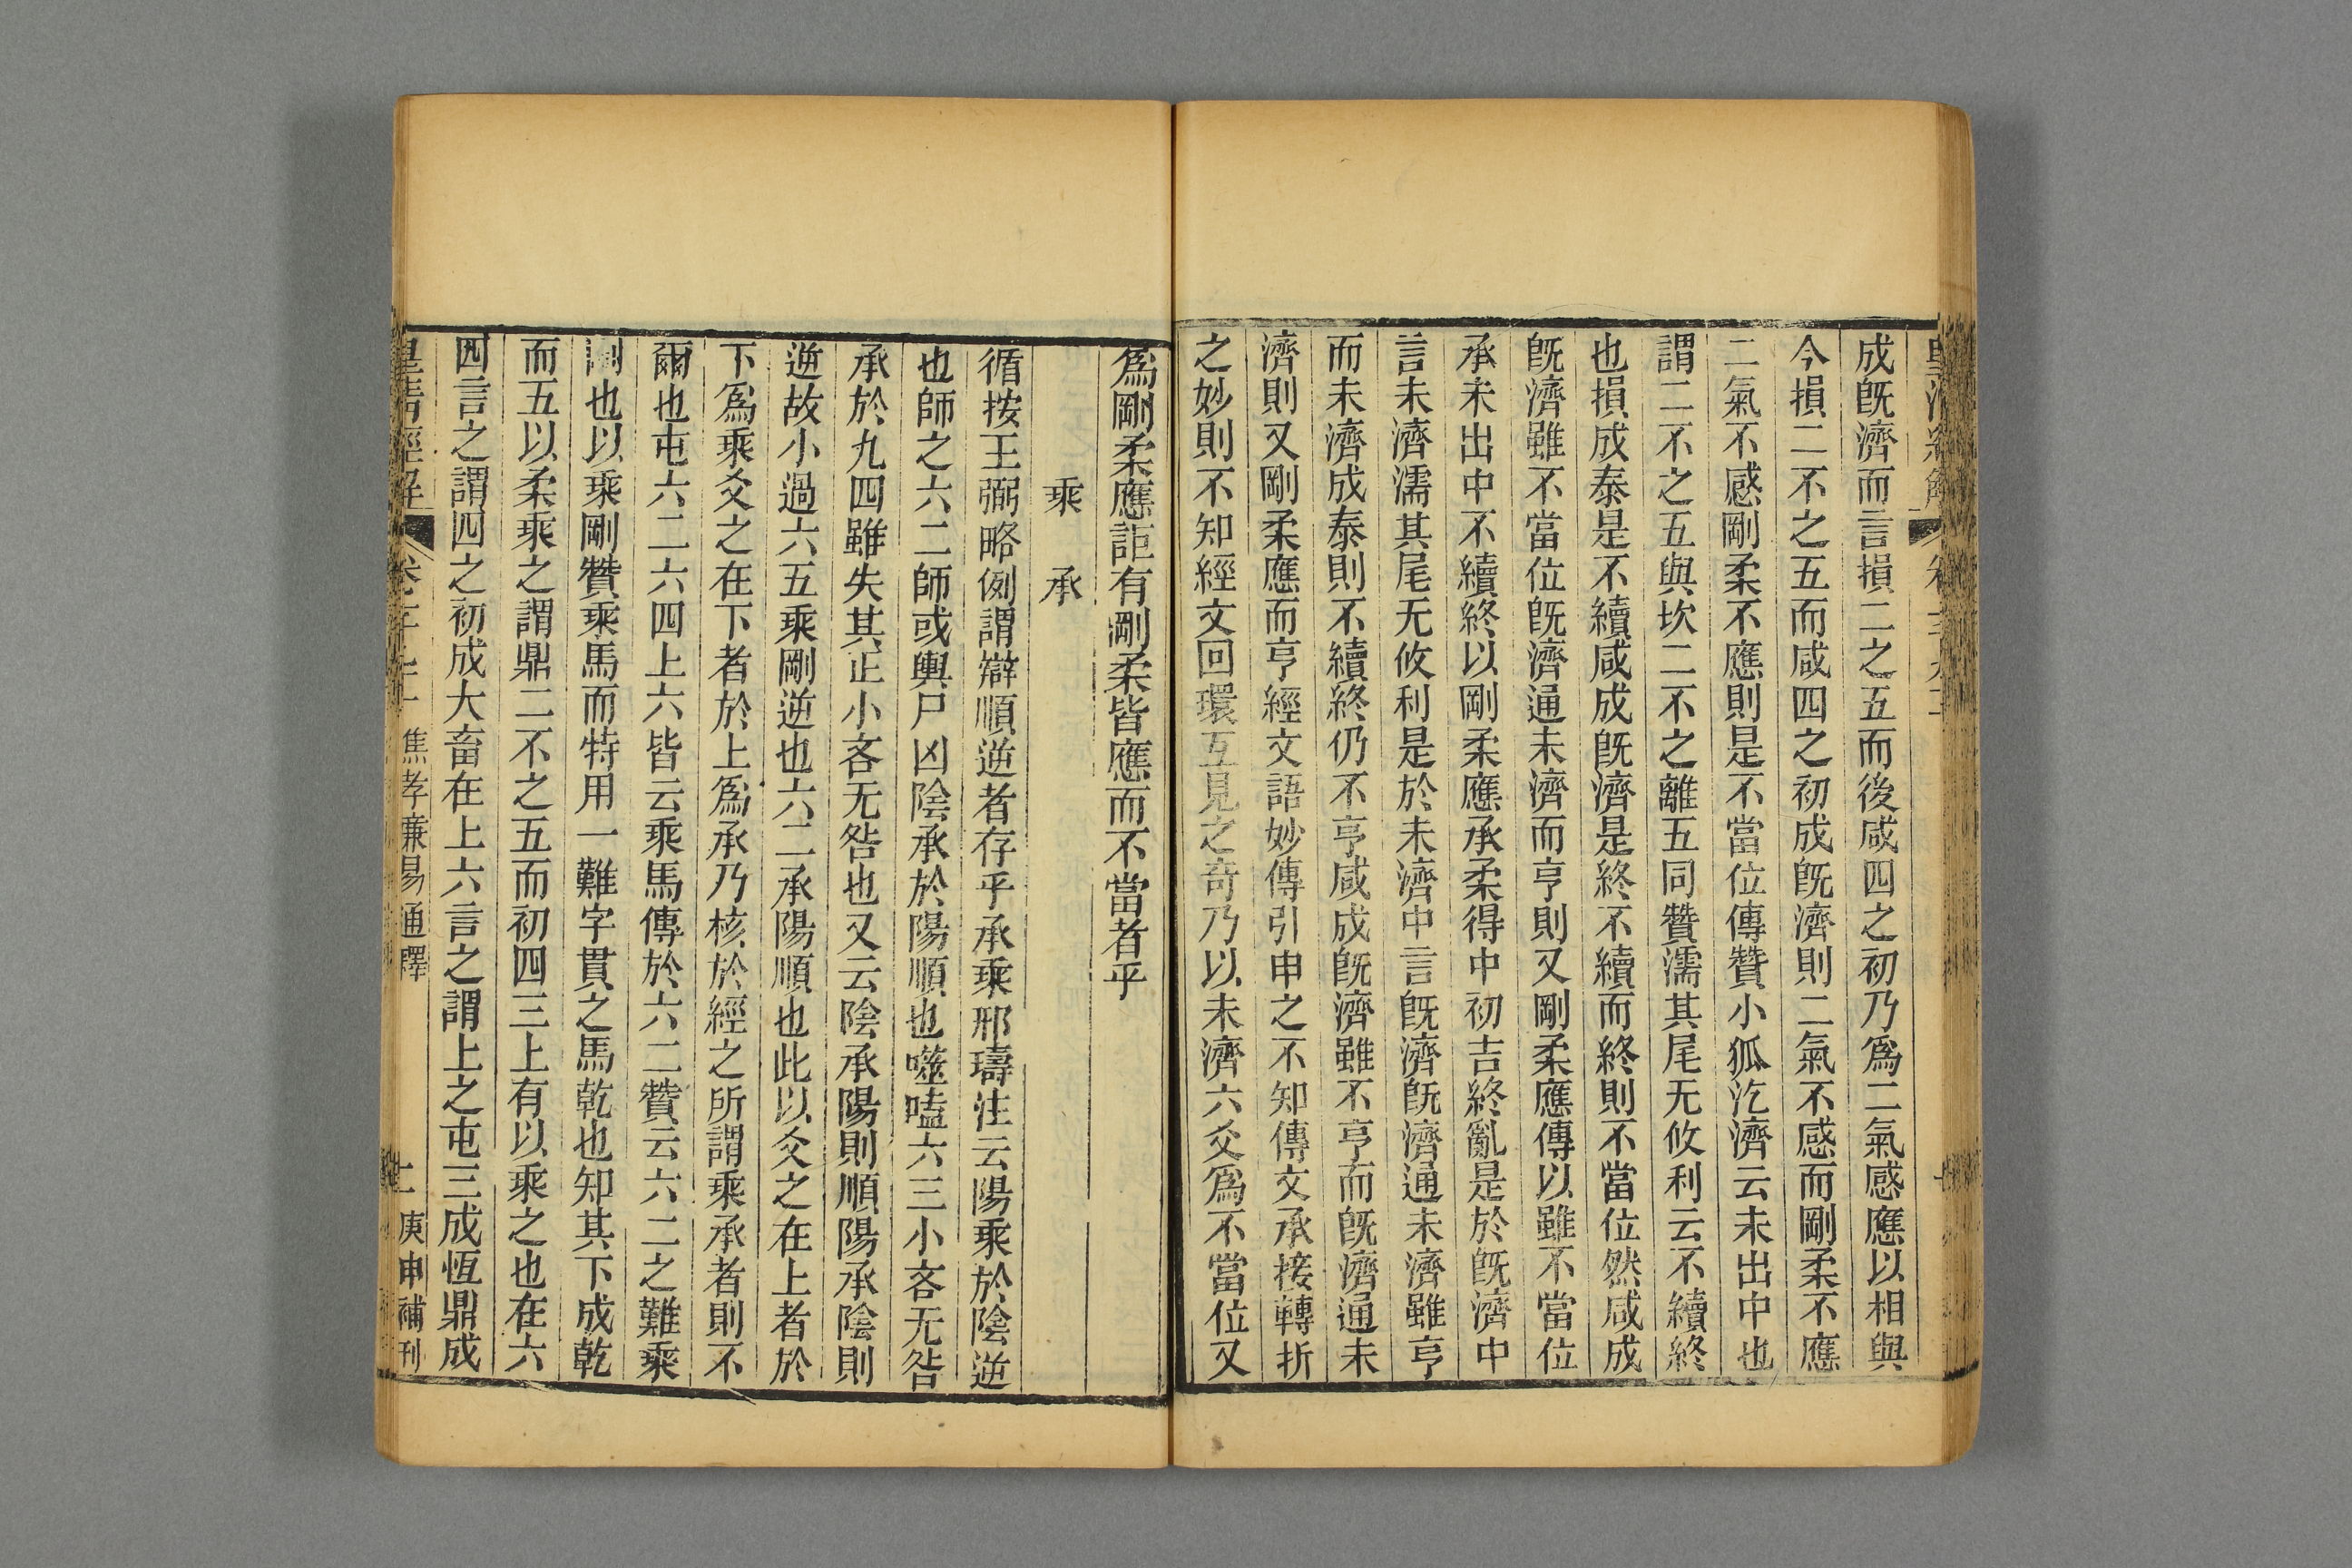 成既濟而言損二之五而後咸四之初乃爲二氣感應以相與
今損二不之五而咸四之初成既濟則二氣不感而剛柔不應
二氣不感剛柔不應則是不當位傳贊小狐汔濟云未出中也
謂二不之五與坎二不之離五同贊濡其尾无攸利云不續終
也損成泰是不續咸成既濟是終不續而終則不當位然咸成
既濟雖不當位既濟通未濟而亨則又剛柔應傳以雖不當位
承未出中不續終以剛柔應承柔得中初吉終亂是於既濟中
言未濟濡其尾无攸利是於未濟中言既濟既濟通未濟雖亨
而未濟成泰則不續終仍不亨咸成既濟雖不亨而既濟通未
濟則又剛柔應而亨經文語妙傳引申之不知傳文承接轉折
之妙則不知經文回環互見之奇乃以未濟六爻爲不當位又
爲剛柔應詎有剛柔皆應而不當者乎
乘承
循按王弼略例謂辯順逆者存乎承乘邢璹注云陽乘於陰逆
也師之六二師或輿尸凶陰承於陽順也噬嗑六三小吝无咎
承於九四雖失其正小吝无咎也又云陰承陽則順陽承陰則
逆故小過六五乘剛逆也六二承陽順也此以爻之在上者於
下爲乘爻之在下者於上爲承乃核於經之所謂乘承者則不
爾也屯六二六四上六皆云乘馬傳於六二贊云六二之難乘
剛也以乘剛贊乘馬而特用一難字貫之馬乾也知其下成乾
而五以柔乘之謂鼎二不之五而初四三上有以乘之也在六
四言之謂四之初成大畜在上六言之謂上之屯三成恆鼎成
皇清經解 焦孝廉易通釋 庚申補刊